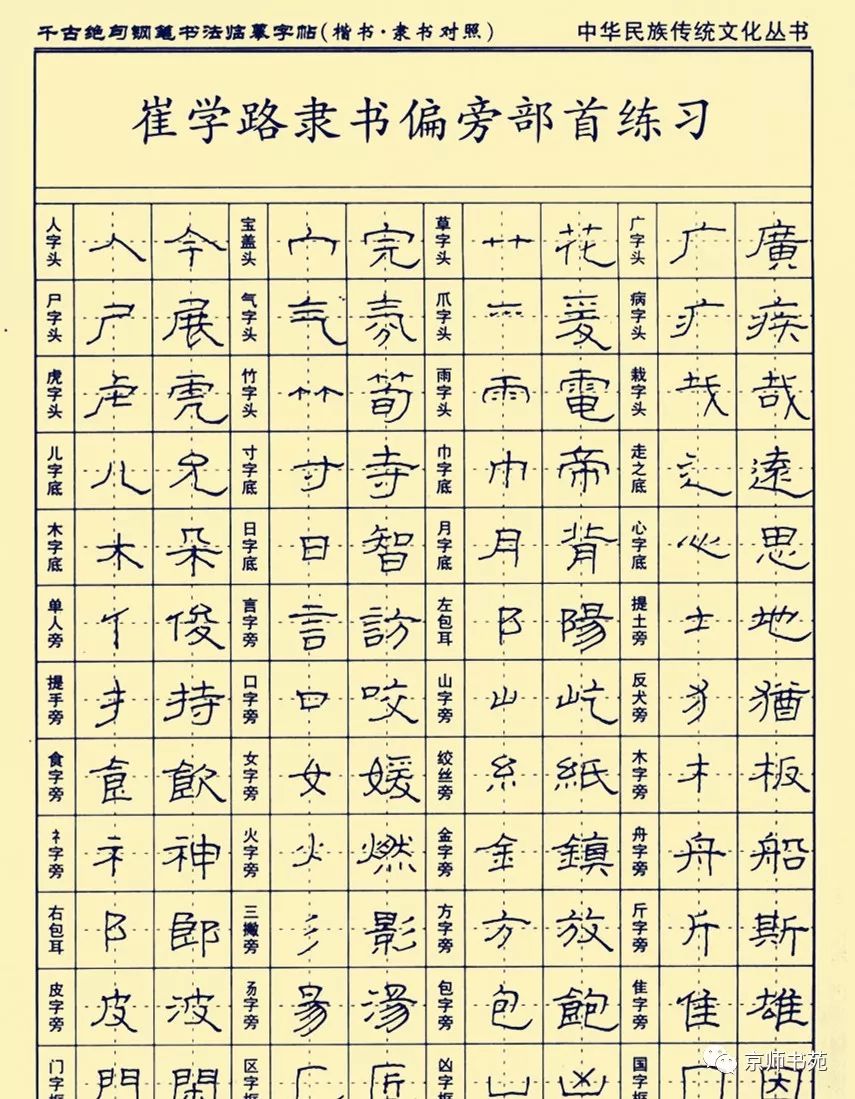 千古绝句钢笔书法临摹字帖(楷书·隶书对照) 中华民族传统文化丛书
崔学路隶书偏旁部首练习
人字头 人 今 宝盖头 宀 完 草字头 艹 花 广字头 广 廣
尸字头 尸 展 气字头 气 氛 爪字头 爫 爰 病字头 疒 疾
虎字头 虍 虎 竹字头 竹 荀 雨字头 雨 電 栽字头 𢦏 哉
儿字底 儿 兄 寸字底 寸 寺 巾字底 巾 帝 走之底 辶 遠
木字底 木 朵 日字底 日 智 月字底 月 背 心字底 心 思
单人旁 亻 俊 言字旁 言 訪 左包耳 阝 陽 提土旁 土 地
提手旁 扌 持 口字旁 口 咬 山字旁 山 屹 反犬旁 犭 猶
食字旁 飠 飲 女字旁 女 媛 绞丝旁 糹 紙 木字旁 木 板
礻字旁 礻 神 火字旁 火 燃 金字旁 金 鎮 舟字旁 舟 船
右包耳 阝 郎 三撇旁 彡 影 方字旁 方 放 斤字旁 斤 斯
皮字旁 皮 波 昜字旁 昜 湯 包字旁 包 飽 隹字旁 隹 雄
门字框 門 閑 区字框 匚 匠 凶字框 凵 凶 国字框 囗
京师书苑